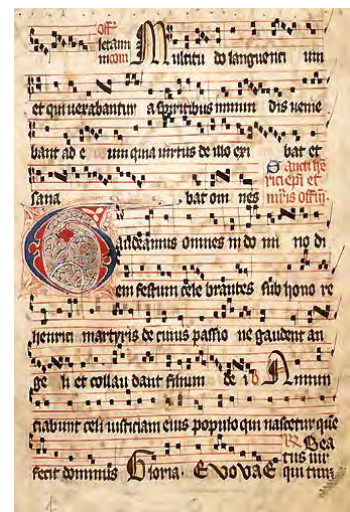 letam
Multitu do languenti um
et qui uexabantur a spiritibus inmun dis ueni e
bant ad e um quia uirtus de illo exi bat et
sana bat om nes
Gaudeamus omnes in do mi no di
em festum cele brantes sub hono re
henrici martyris de cuius passio ne gaudent an
ge li et collau dant filium de i Annun
ciabunt celi iusticiam eius populo qui nascetur que
fecit dominus Gloria. EVOVAE
Bea
tus uir
qui tim